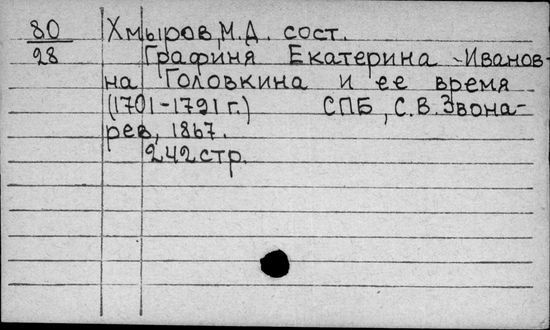 80 Хмыров, М.Д. сост.
28 Графиня Екатерина Иванов-
на Головкина и ее время
(1701-1791 г.) СПБ, С.В. Звона-
рев, 1867.
242 стр.